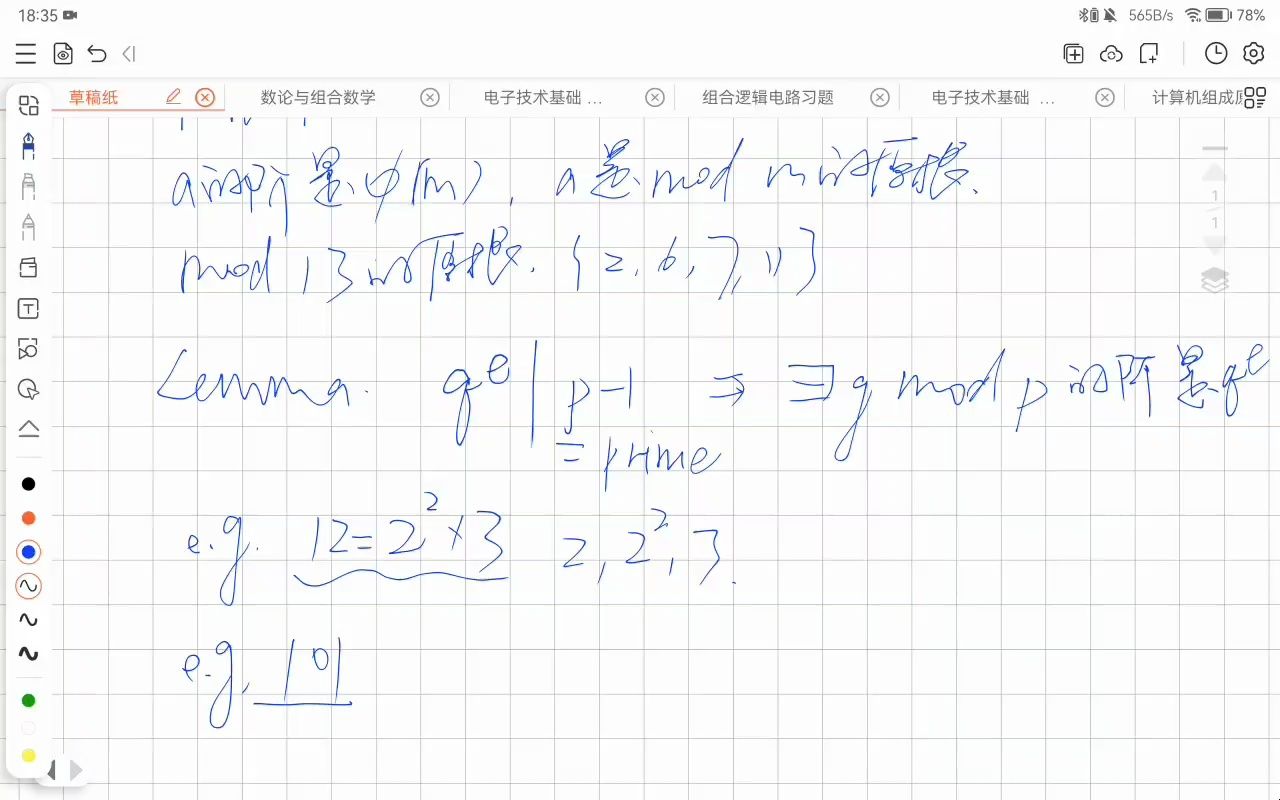 18:35 565B/s 78%
草稿纸 数论与组合数学 电子技术基础 ... 组合逻辑电路习题 电子技术基础 ... 计算机组成原
a的阶是φ(m), a是mod m的原根.
mod 13的原根. {2, 6, 7, 11}
Lemma. q^e | p-1 ⇒ ∃ g mod p 的阶是q^e
= prime
e.g. 12=2^2×3 2, 2^2, 3.
e.g. 101
1
1